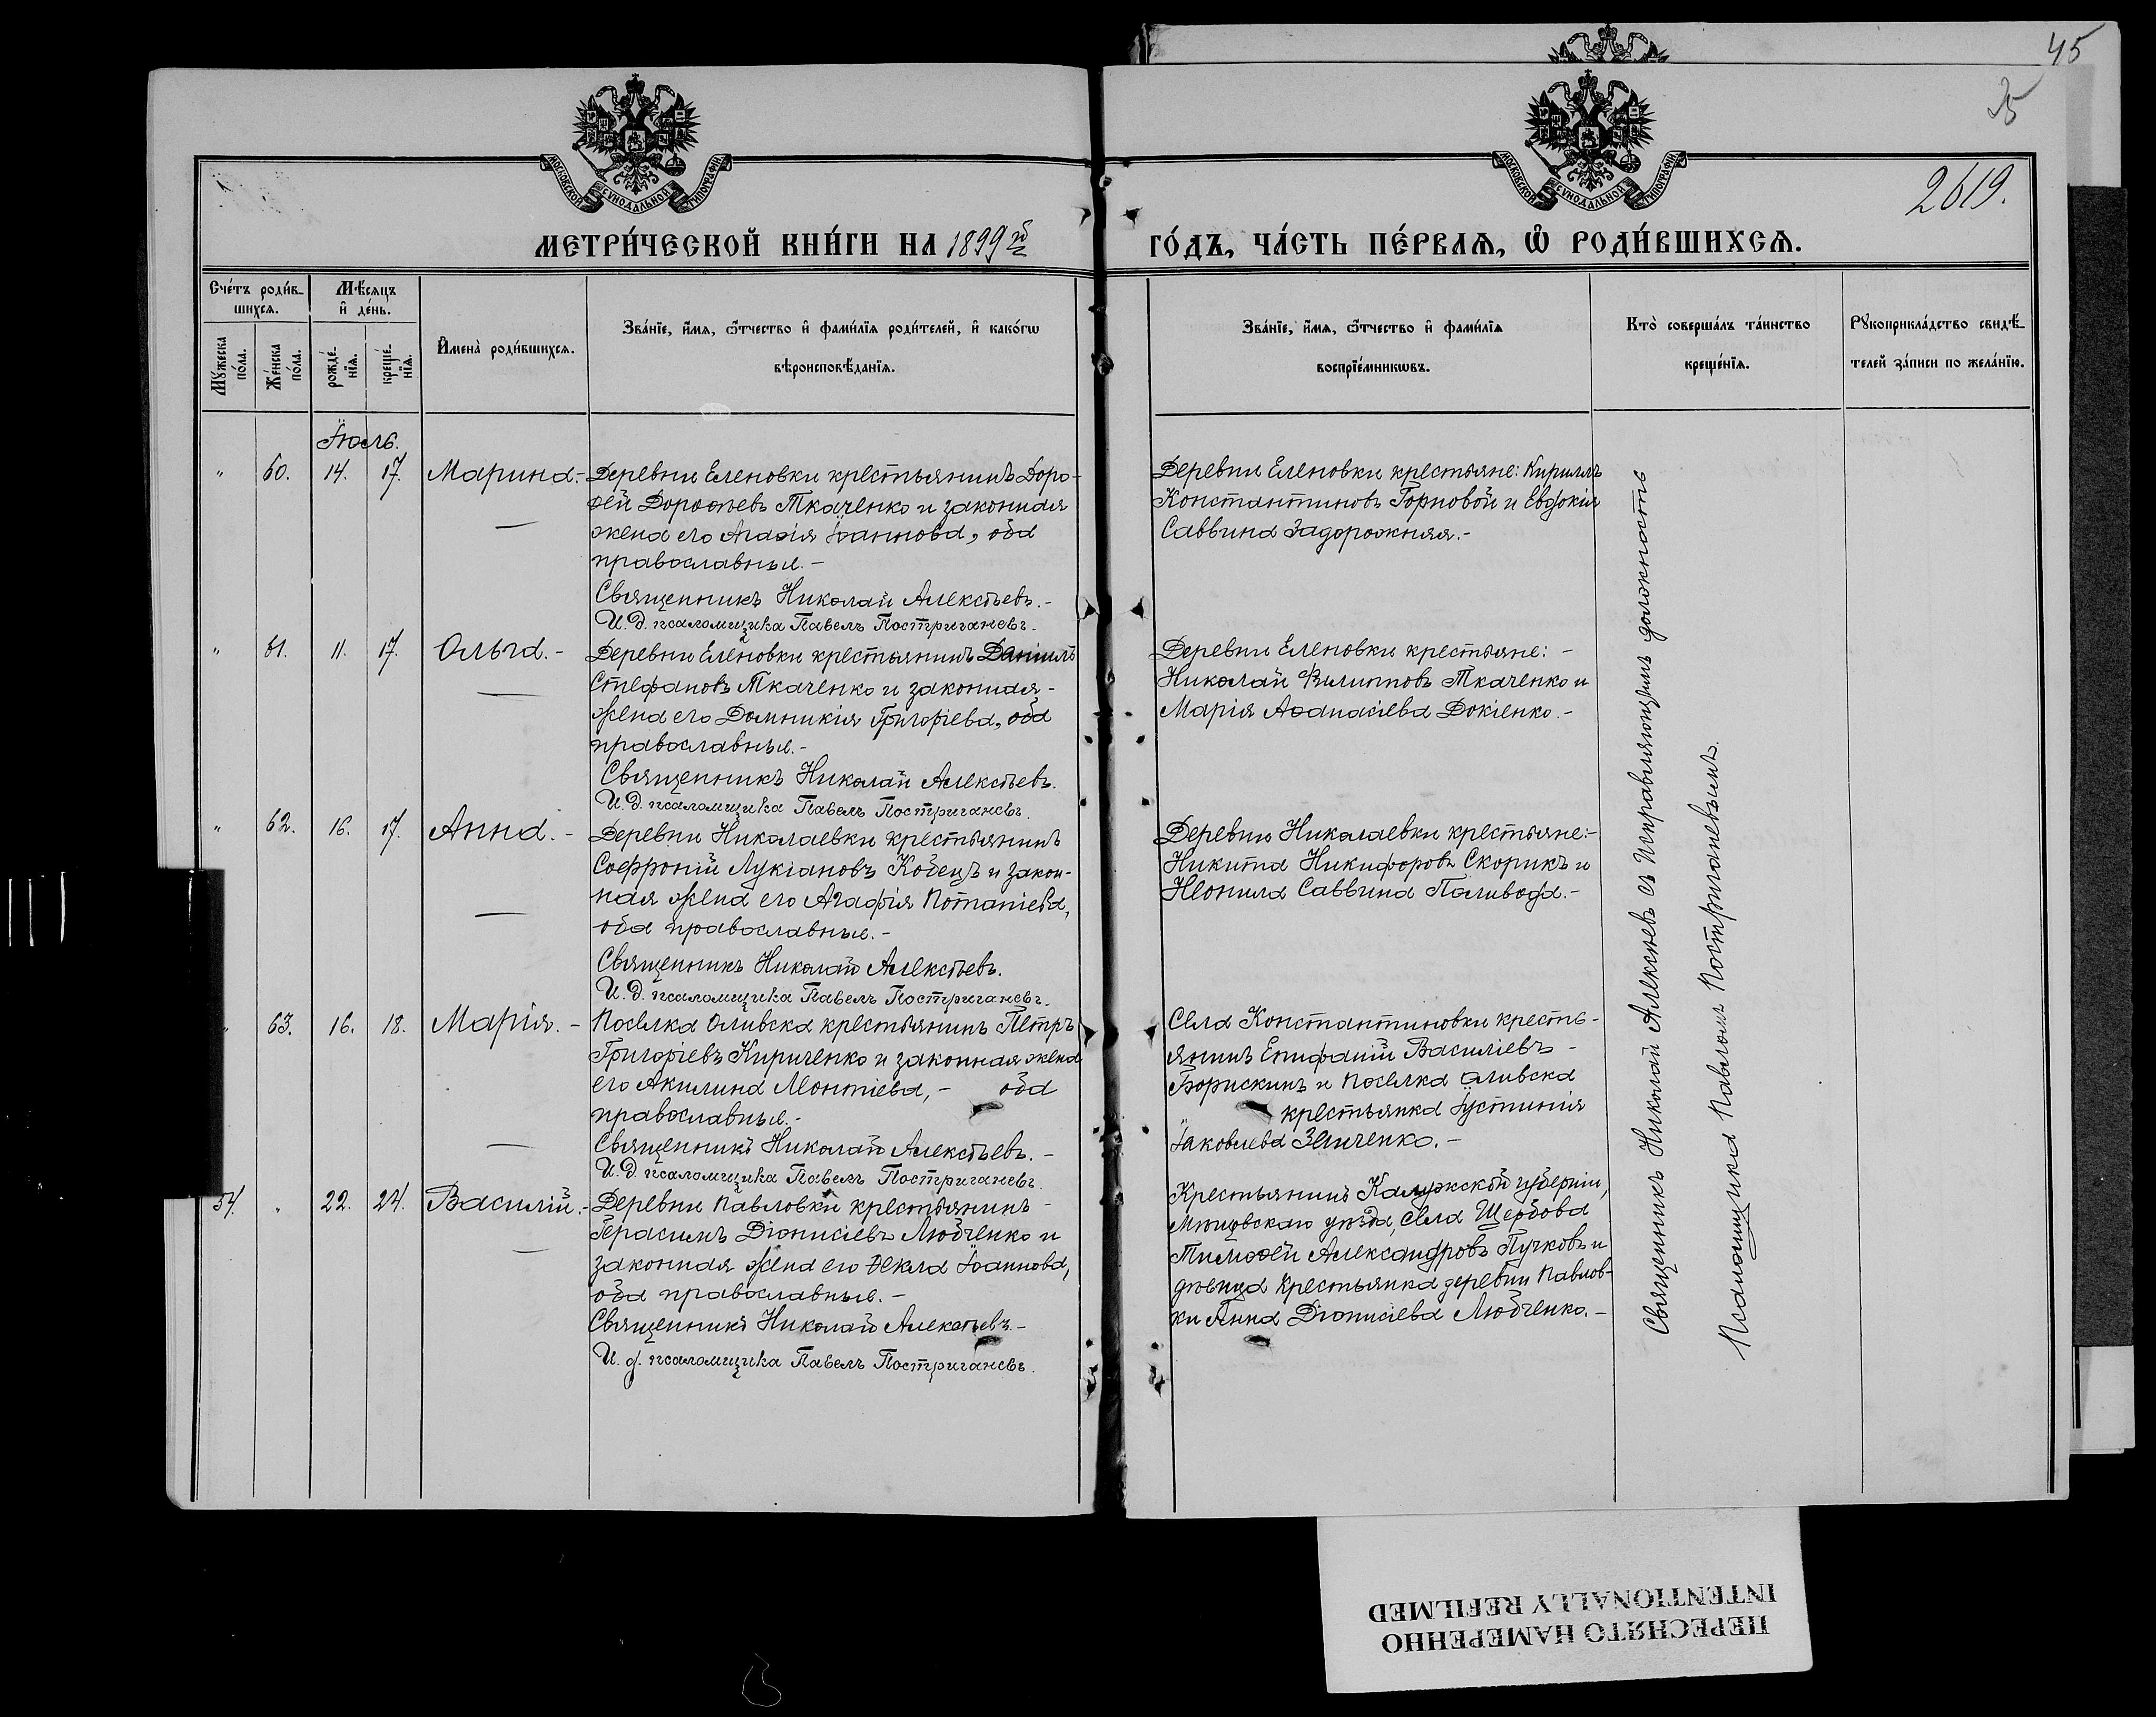 45
25
2619.
МОСКОВСКОЙ СУНОДАЛЬНОЙ ТИПОГРАФІИ
МОСКОВСКОЙ СУНОДАЛЬНОЙ ТИПОГРАФІИ
МЕТРИ́ЧЕСКОЙ КНИ́ГИ НА 1899 й
ГО́ДЪ, ЧА́СТЬ ПЕ́РВАѦ, Ѡ҆ РОДИ́ВШИХСѦ.
Сче́тъ роди́в-
шихсѧ.
Мѣ́сѧцъ
и҆ де́нь.
Мꙋ́жеска
по́ла.
Же́нска
по́ла.
рожде́-
нїѧ.
креще́-
нїѧ.
И҆мена̀ роди́вшихсѧ.
Зва́нїе, и҆́мѧ, ѻ҆́тчество и҆ фамі́лїѧ роди́телей, и҆ како́гѡ
вѣроисповѣ́данїѧ.
Зва́нїе, и҆́мѧ, ѻ҆́тчество и҆ фамі́лїѧ
воспрїе́мникѡвъ.
Кто̀ соверша́лъ та́инство
креще́нїѧ.
Рꙋкоприкла́дство свидѣ́-
телей за́писи по жела́нїю.
Іюль.
" 60. 14. 17. Марина.- Деревни Еленовки крестьянинъ Доро-
ѳей Дороѳеевъ Ткаченко и законная
жена его Агаѳія Іоаннова, оба
православные.-
Священникъ Николай Алексѣевъ.-
И.д. псаломщика Павелъ Постриганевъ.
Деревни Еленовки крестьяне: Кириллъ
Константиновъ Горновой и Евдокія
Саввина Задорожняя.-
" 61. 11. 17. Ольга.- Деревни Еленовки крестьянинъ Даніилъ
Стефановъ Ткаченко и законная-
жена его Домникія Григоріева, оба
православные.-
Священникъ Николай Алексѣевъ.
И.д. псаломщика Павелъ Постриганевъ.
Деревни Еленовки крестьяне:-
Николай Филипповъ Ткаченко и
Марія Аѳанасіева Докіенко.-
" 62. 16. 17. Анна.- Деревни Николаевки крестьянинъ
Софроній Лукіановъ Кобецъ и закон-
ная жена его Агафія Потапіева,
оба православные.-
Священникъ Николай Алексѣевъ.
И.д. псаломщика Павелъ Постриганевъ.
Деревни Николаевки крестьяне:-
Никита Никифоровъ Скорикъ и
Неонила Саввина Паливода.-
" 63. 16. 18. Марія.- Поселка Оливска крестьянинъ Петръ
Григоріевъ Кириченко и законная жена
его Акилина Леонтіева,- оба
православные.-
Священникъ Николай Алексѣевъ.-
И.д. псаломщика Павелъ Постриганевъ.
Села Константиновки кресть-
янинъ Епифаній Василіевъ-
Борискинъ и поселка Оливска
крестьянка Іустинія
Іаковлева Зенченко.-
54. " 22. 24. Василій.- Деревни Павловки крестьянинъ-
Герасимъ Діонисіевъ Любченко и
законная жена его Ѳекла Іоаннова,
оба православные.-
Священникъ Николай Алексѣевъ.-
И.д. псаломщика Павелъ Постриганевъ.
Крестьянинъ Калужской губерніи,
уѣзда, села Щербова
Тимоѳей Александровъ Пучковъ и
дѣвица крестьянка деревни Павлов-
ки Анна Діонисіева Любченко.-
Священникъ Николай Алексѣевъ съ исправляющимъ должность
Псаломщика Павломъ Постриганевымъ.
ПЕРЕСНЯТО НАМЕРЕННО
INTENTIONALLY REFILMED